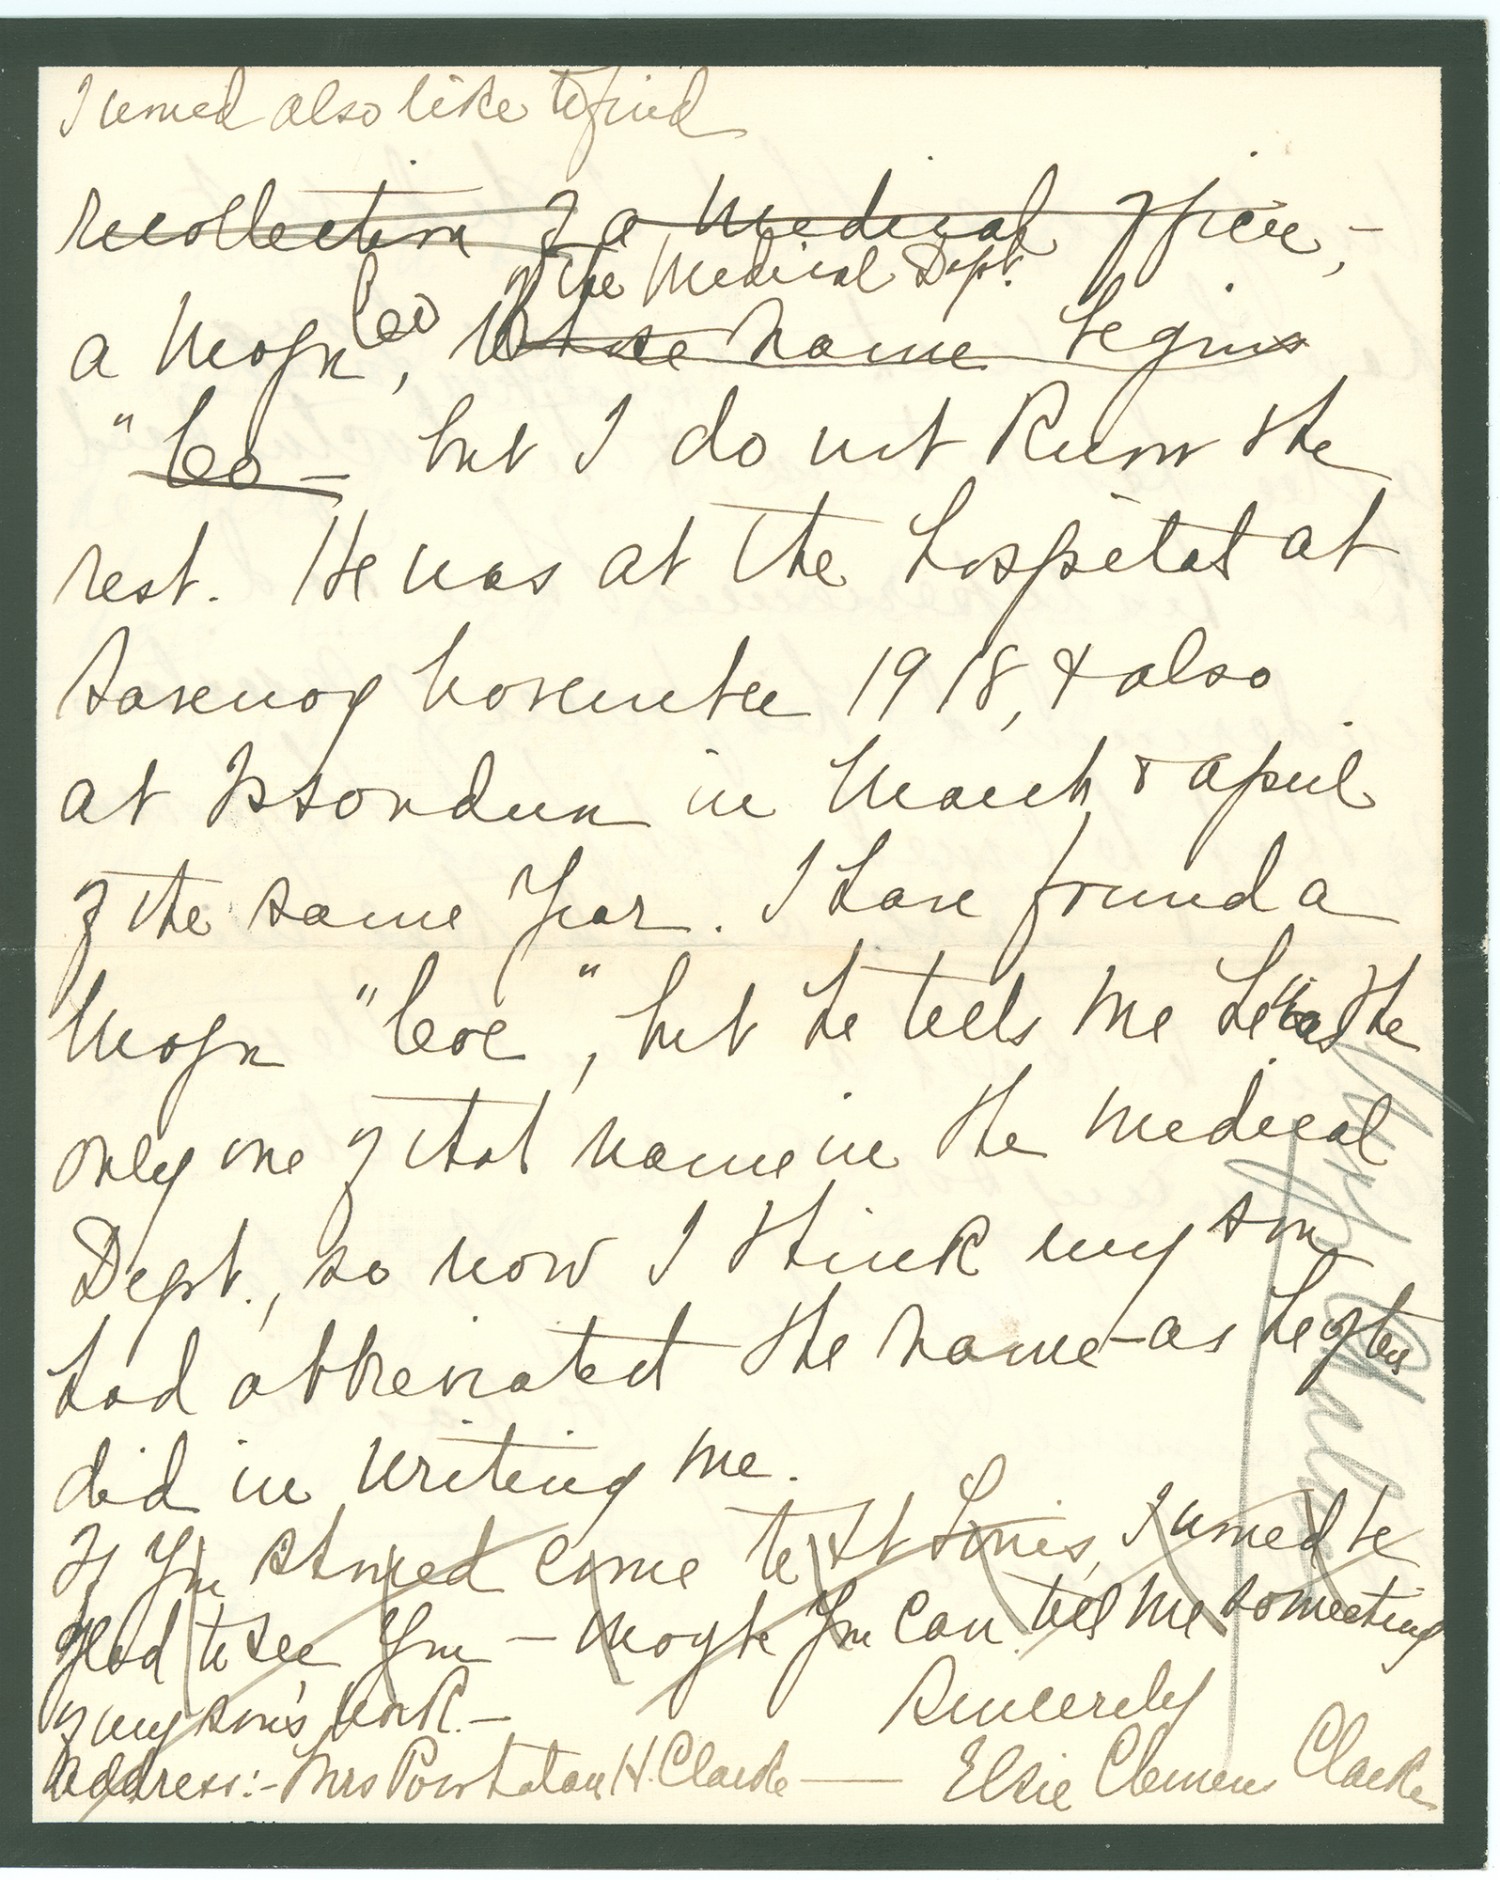 I would also like to find
recollection of a Medical officer, -
of the Medical Dept.
a Major Co, whose name begins
"Co - but I do not know the
rest. He was at the hospital at
Savenay November 1918, & also
at Issoudun in March & April
of the same year. I have found a
Major "Coe", but he tells me he was the
only one of that name in the Medical
Dept., so now I think my son
had abbreviated the name - as he often
did in writing me.
If you should come to St Louis, I would be
glad to see you - maybe you can tell me something
of my son's work. -
Sincerely
Address:- Mrs Powhatan H. Clarke — Elsie Clemens Clarke